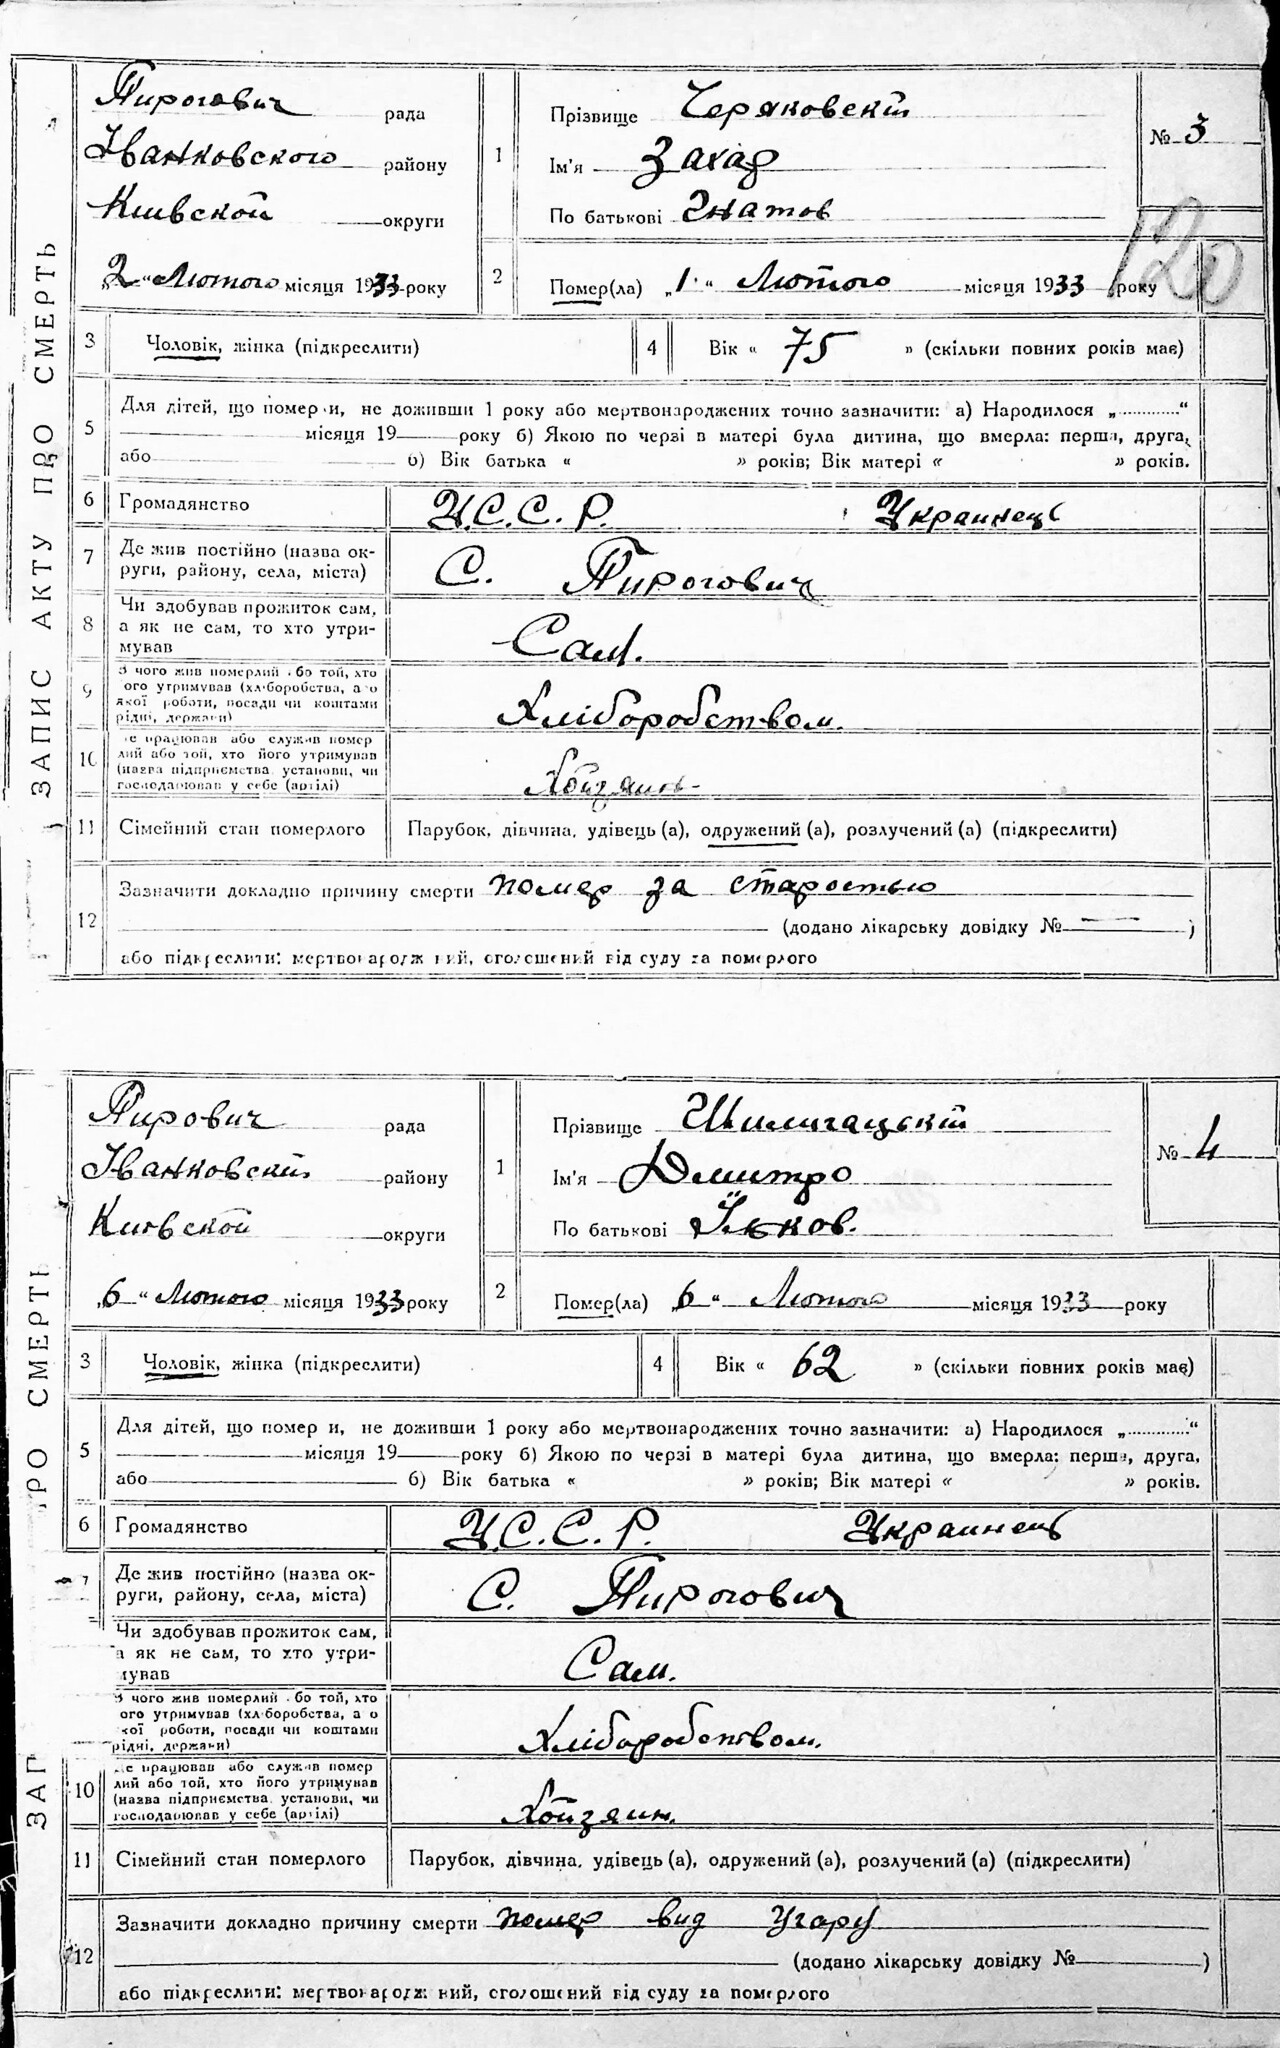 ЗАПИС АКТУ ПРО СМЕРТЬ
Пирогович рада
Іванковского району
Киівской округи
„2“ Лютого місяця 1933 року
1
Прізвище Черяковскій
Ім'я Захар
По батькові Гнатов
№ 3
120
2
Помер(ла) „1“ Лютого місяця 1933 року
3 Чоловік, жінка (підкреслити)
4 Вік « 75 » (скільки повних років має)
5
Для дітей, що померли, не доживши 1 року або мертвонароджених точно зазначити: а) Народилося „............“
місяця 19 року б) Якою по черзі в матері була дитина, що вмерла: перша, друга,
або б) Вік батька « » років; Вік матері « » років.
6 Громадянство У.С.С.Р. Украинець
7
Де жив постійно (назва ок-
руги, району, села, міста)
С. Пирогович
8
Чи здобував прожиток сам,
а як не сам, то хто утри-
мував
Сам.
9
З чого жив померлий або той, хто
його утримував (хліборобства, а о
якої роботи, посади чи коштами
рідні, держави)
Хліборобством.
10
Де працював або служив помер
лий або той, хто його утримував
(назва підприємства установи, чи
господарював у себе (артілі)
Хойзяин
11 Сімейний стан померлого Парубок, дівчина, удівець (а), одружений (а), розлучений (а) (підкреслити)
12
Зазначити докладно причину смерти помер за старостью
(додано лікарську довідку № — )
або підкреслити: мертвонароджений, оголошений від суду за померлого
РО СМЕРТЬ
ЗАП
Пирович рада
Іванковскій району
Киівской округи
„6“ Лютого місяця 1933 року
1
Прізвище
Ім'я Дмитро
По батькові Ільков.
№ 4
2
Помер(ла) „6“ Лютого місяця 1933 року
3 Чоловік, жінка (підкреслити)
4 Вік « 62 » (скільки повних років має)
5
Для дітей, що померли, не доживши 1 року або мертвонароджених точно зазначити: а) Народилося „............“
місяця 19 року б) Якою по черзі в матері була дитина, що вмерла: перша, друга,
або б) Вік батька « » років; Вік матері « » років.
6 Громадянство У.С.С.Р. Украинець
7
Де жив постійно (назва ок-
руги, району, села, міста)
С. Пирогович
Чи здобував прожиток сам,
а як не сам, то хто утри-
мував
Сам.
З чого жив померлий або той, хто
його утримував (хліборобства, а о
якої роботи, посади чи коштами
рідні, держави)
Хліборобством.
10
Де працював або служив помер
лий або той, хто його утримував
(назва підприємства установи, чи
господарював у себе (артілі)
Хойзяин.
11 Сімейний стан померлого Парубок, дівчина, удівець (а), одружений (а), розлучений (а) (підкреслити)
12
Зазначити докладно причину смерти помер вид Угару
(додано лікарську довідку № )
або підкреслити: мертвонароджений, оголошений від суду за померлого